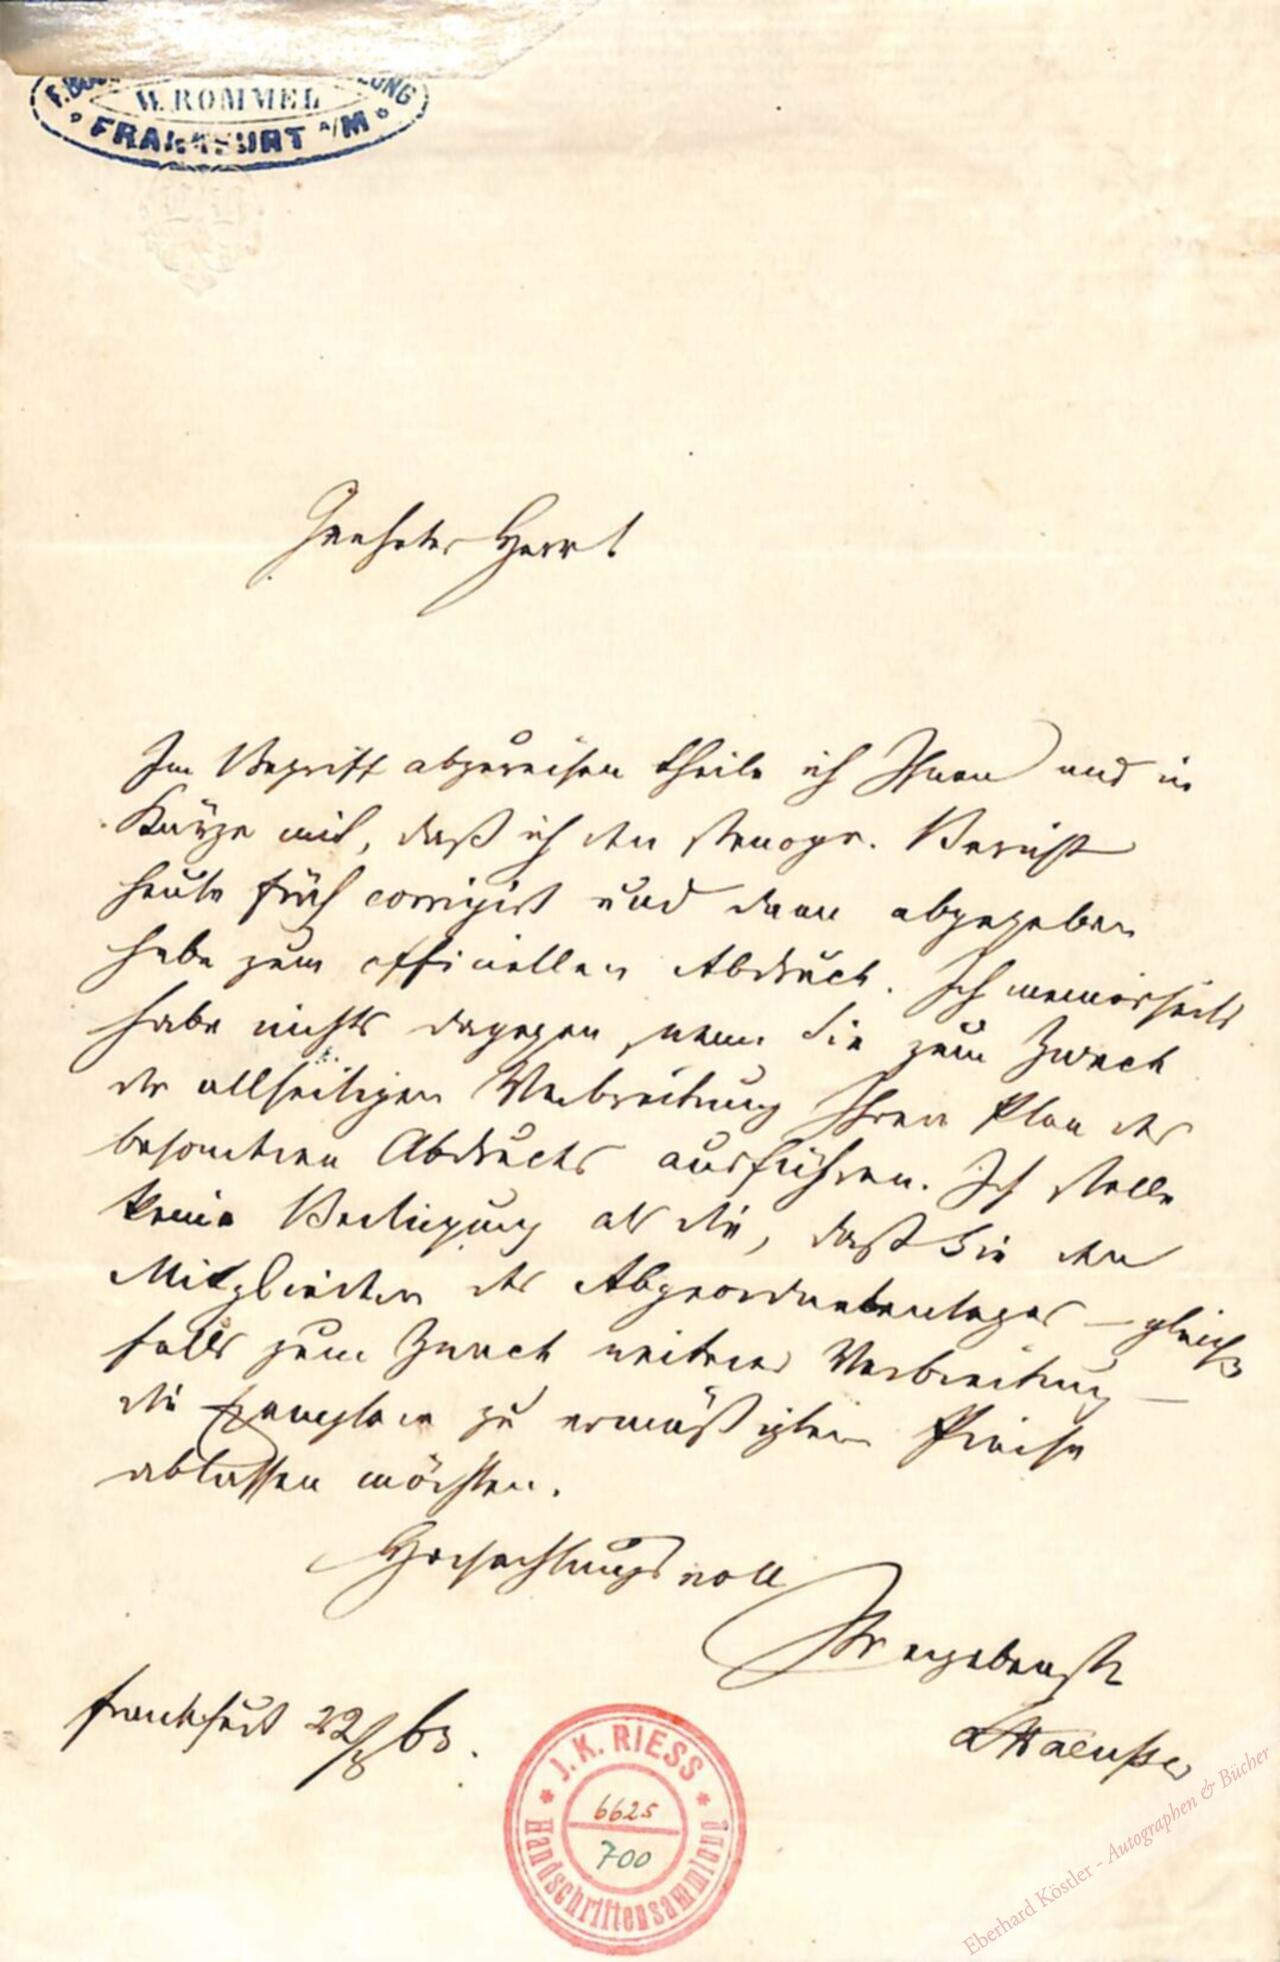 W. ROMMEL
FRANKFURT A/M
Geehrter Herr!
Im Begriff abzureisen theile ich Ihnen nur in
Kürze mit, daß ich den stenogr. Bericht
heute früh corrigirt und dann abgegeben
habe zum officiellen Abdruck. Ich meinerseits
habe nichts dagegen, wenn Sie zum Zweck
der allseitigen Verbreitung Ihren Plan des
besonderen Abdrucks ausführen. Ich stelle
keine Bedingung als die, daß Sie den
Mitgliedern des Abgeordnetentages – gleich
falls zum Zweck weiterer Verbreitung –
die Exemplare zu ermäßigtem Preise
ablassen möchten.
Hochachtungsvoll
Ihr ergebenster
LHaeusser
Frankfurt 22/8 63.
J. K. RIESS
6625
700
Handschriftensammlung
Eberhard Köstler - Autographen & Bücher